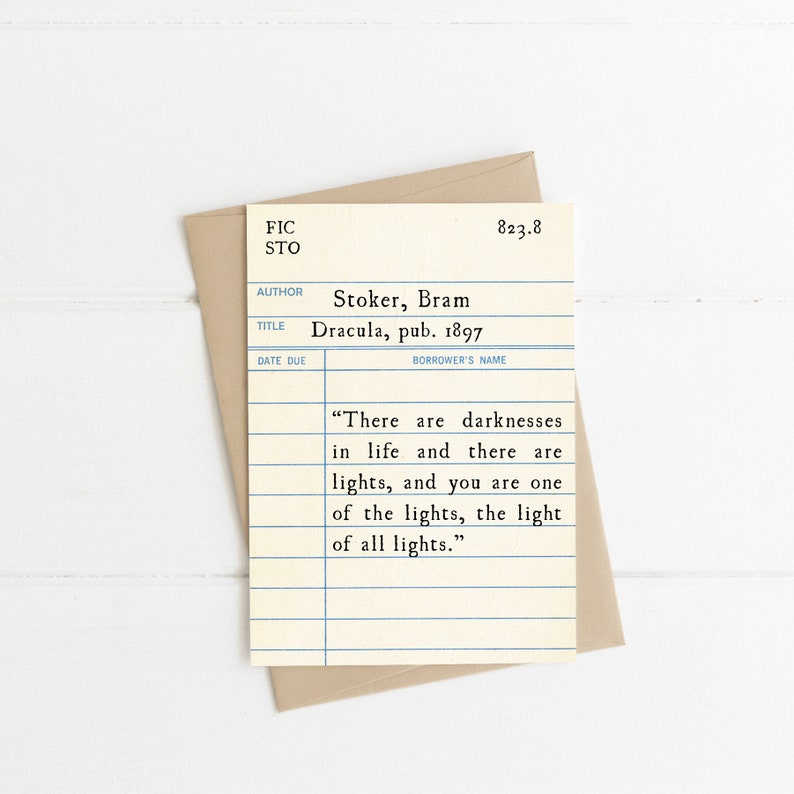 FIC 823.8
STO
AUTHOR Stoker, Bram
TITLE Dracula, pub. 1897
DATE DUE BORROWER'S NAME
“There are darknesses
in life and there are
lights, and you are one
of the lights, the light
of all lights.”